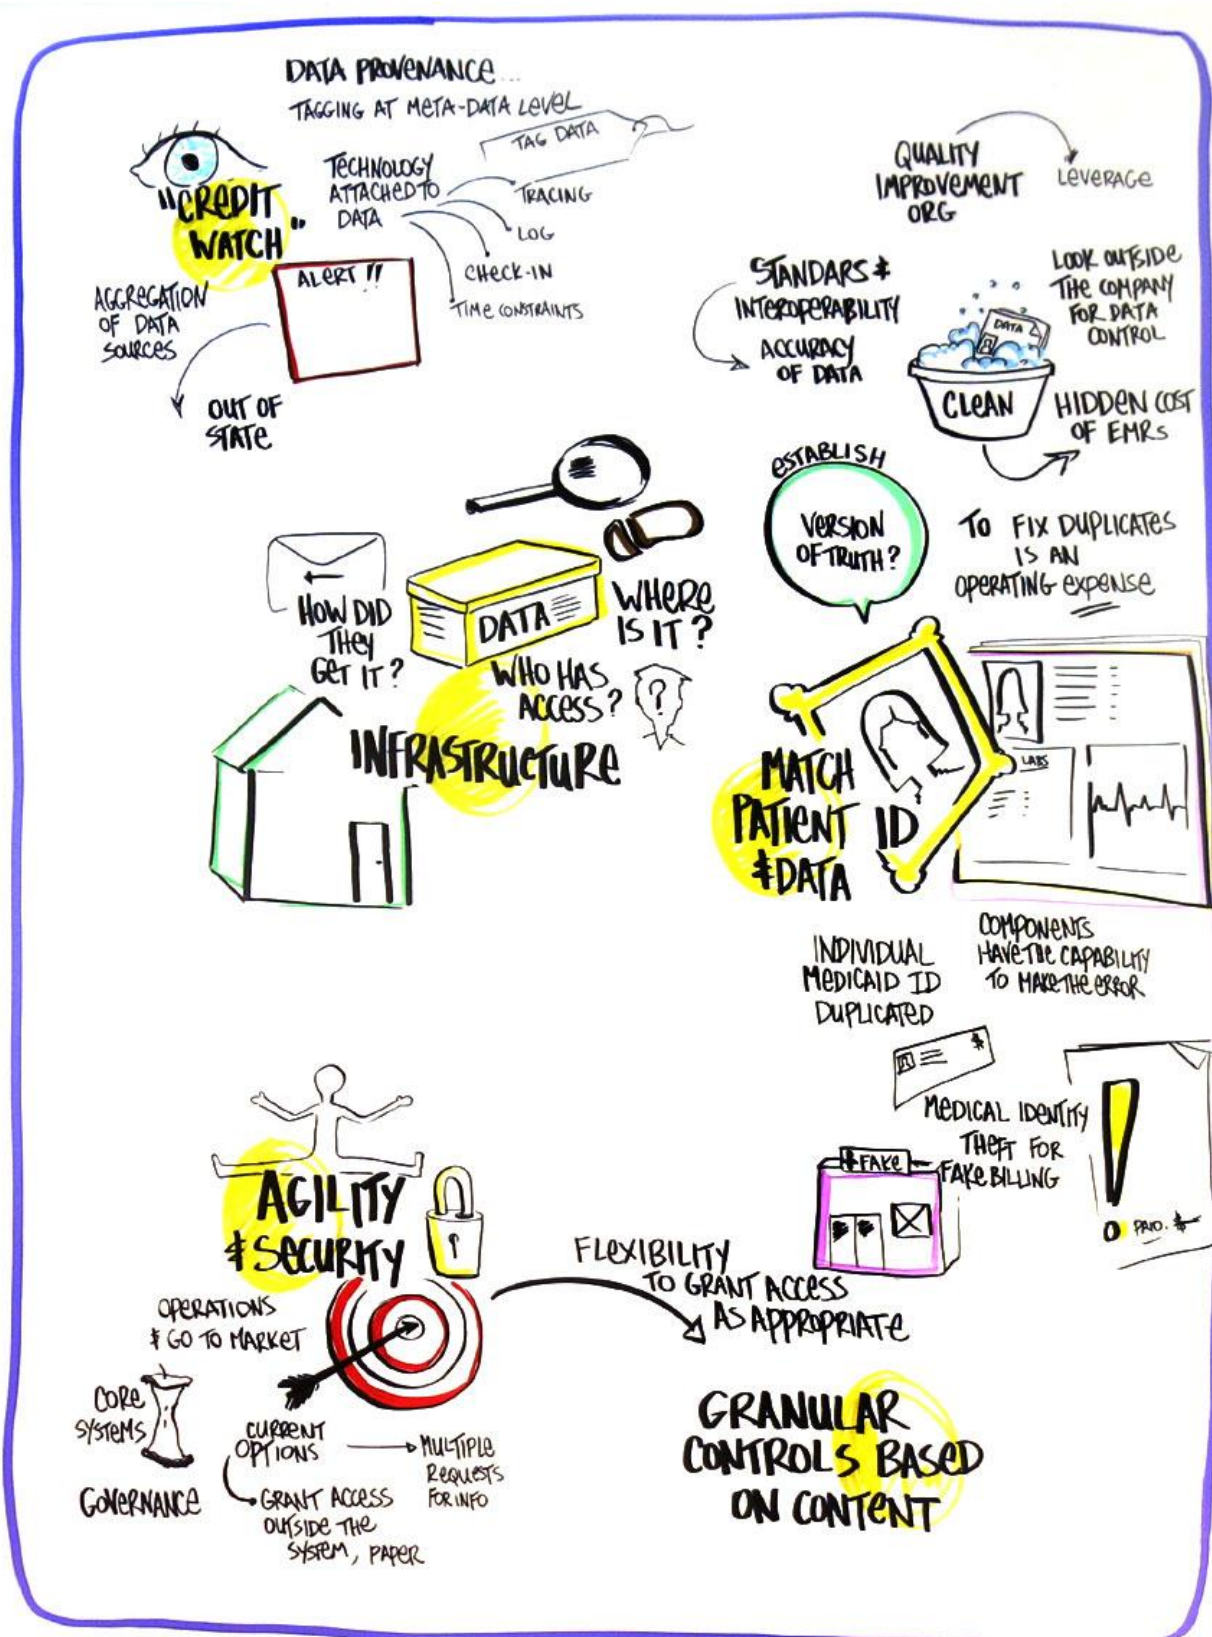 DATA PROVENANCE...
TAGGING AT META-DATA LEVEL
TAG DATA
TECHNOLOGY
ATTACHED TO
DATA
TRACING
LOG
CHECK-IN
TIME CONSTRAINTS
"CREDIT
WATCH"
ALERT!!
AGGREGATION
OF DATA
SOURCES
OUT OF
STATE
QUALITY
IMPROVEMENT
ORG
LEVERAGE
STANDARS &
INTEROPERABILITY
ACCURACY
OF DATA
LOOK OUTSIDE
THE COMPANY
FOR DATA
CONTROL
DATA
CLEAN
HIDDEN COST
OF EMRs
ESTABLISH
VERSION
OF TRUTH?
TO FIX DUPLICATES
IS AN
OPERATING EXPENSE
HOW DID
THEY
GET IT?
DATA
WHERE
IS IT?
WHO HAS
ACCESS?
?
INFRASTRUCTURE
MATCH
PATIENT ID
& DATA
LABS
INDIVIDUAL
MEDICAID ID
DUPLICATED
COMPONENTS
HAVE THE CAPABILITY
TO MAKE THE ERROR
$
MEDICAL IDENTITY
THEFT FOR
FAKE BILLING
FAKE
!
PAID. $
AGILITY
& SECURITY
OPERATIONS
& GO TO MARKET
CORE
SYSTEMS
GOVERNANCE
CURRENT
OPTIONS
MULTIPLE
REQUESTS
FOR INFO
GRANT ACCESS
OUTSIDE THE
SYSTEM, PAPER
FLEXIBILITY
TO GRANT ACCESS
AS APPROPRIATE
GRANULAR
CONTROLS BASED
ON CONTENT